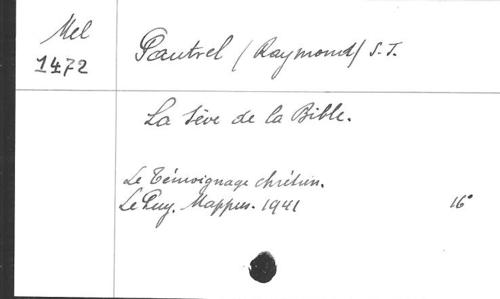 Mel
1472
Pautrel (Raymond) S. J.
La Sève de la Bible.
Le Témoignage chrétien.
Le Puy. Mappus. 1941
16°